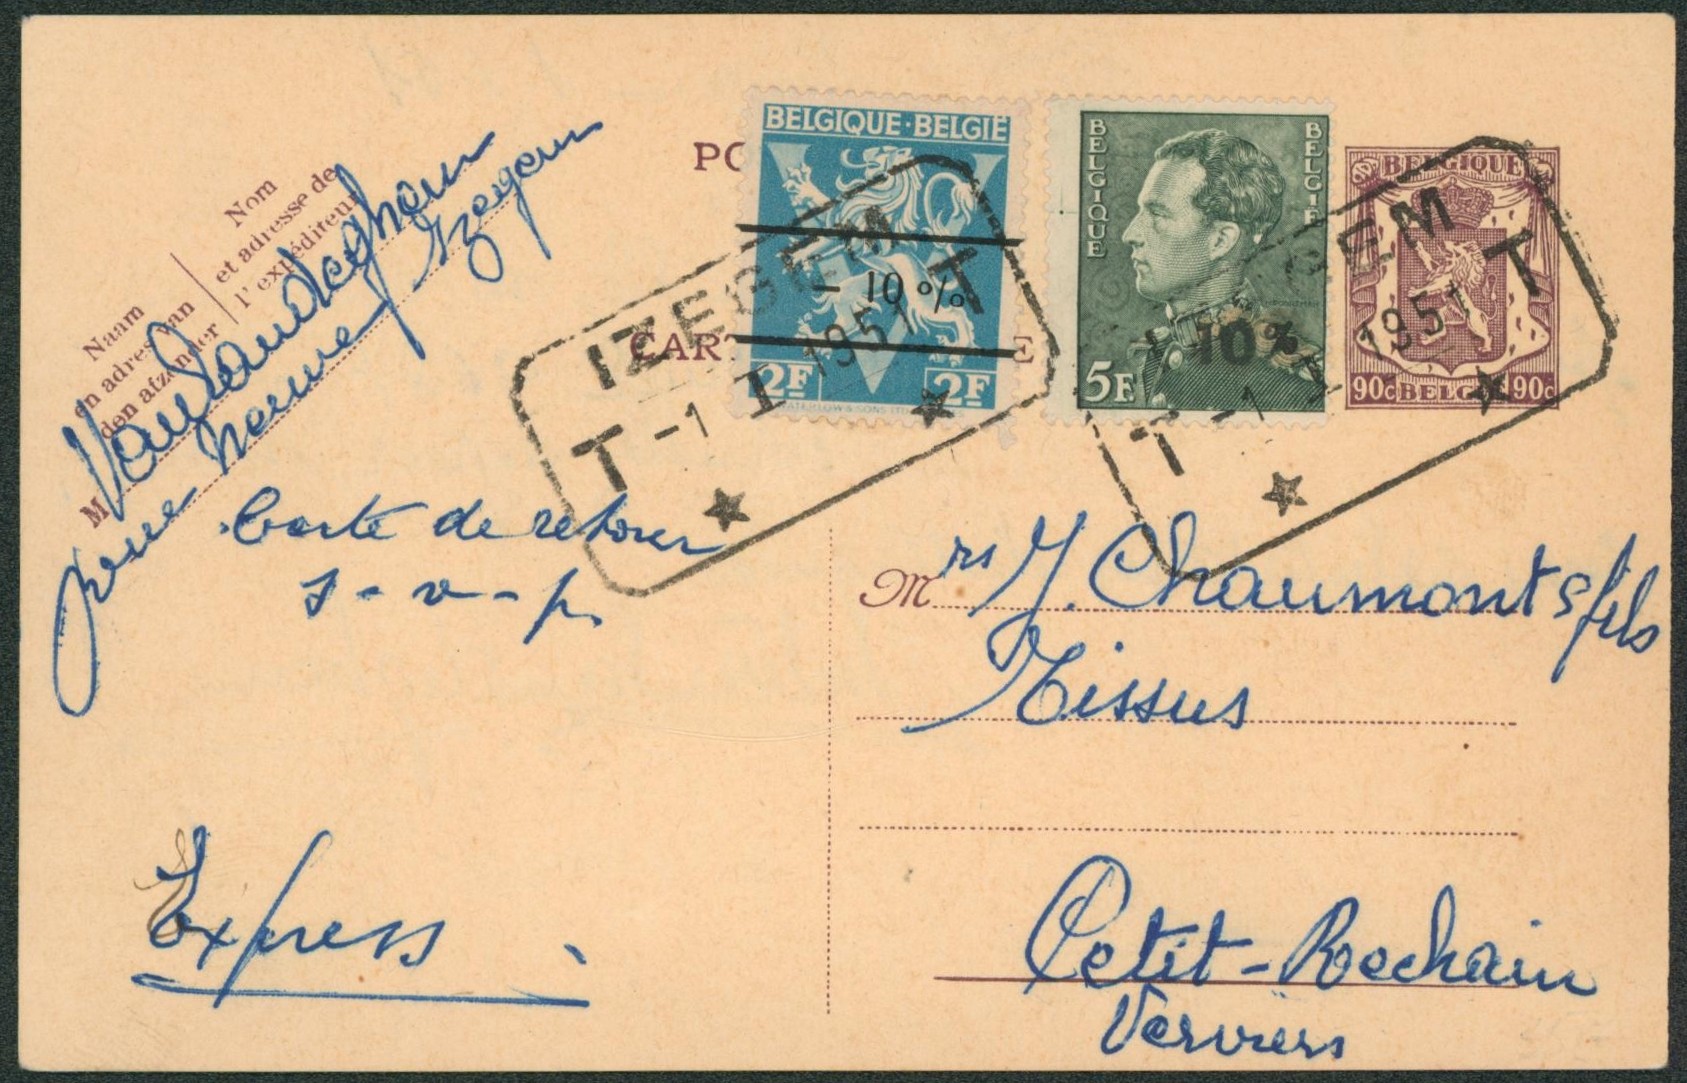 Nom
et adresse de
l'expéditeur
Naam
en adres van
den afzender
M
Izegem
PO
CAR
E
BELGIQUE·BELGIË
- 10 %
2F 2F
WATERLOW & SONS LTD
BELGIQUE
BELGIË
-10%
5F
BELGIQUE
90c BELGIË 90c
IZEGEM
T -1 I 1951 T
IZEGEM
T -1 I 1951 T
Carte de retour
s-v-p
Mrs J. Chaumont & fils
Tissus
Express
Petit-Rechain
Verviers